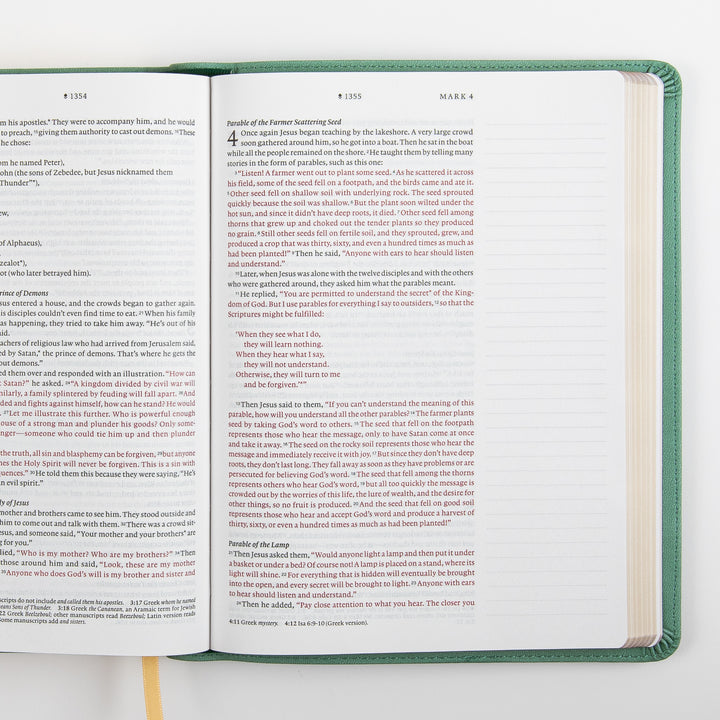 1354
m his apostles.* They were to accompany him, and he would
to preach, 15giving them authority to cast out demons. 16These
he chose:
om he named Peter),
ohn (the sons of Zebedee, but Jesus nicknamed them
Thunder"*),
ew,
of Alphaeus),
zealot*),
ot (who later betrayed him).
rince of Demons
esus entered a house, and the crowds began to gather again.
s disciples couldn't even find time to eat. 21When his family
was happening, they tried to take him away. "He's out of his
said.
eachers of religious law who had arrived from Jerusalem said,
ed by Satan,* the prince of demons. That's where he gets the
out demons."
ed them over and responded with an illustration. "How can
Satan?" he asked. 24"A kingdom divided by civil war will
milarly, a family splintered by feuding will fall apart. 26And
ded and fights against himself, how can he stand? He would
27Let me illustrate this further. Who is powerful enough
ouse of a strong man and plunder his goods? Only some-
nger—someone who could tie him up and then plunder
the truth, all sin and blasphemy can be forgiven, 29but anyone
mes the Holy Spirit will never be forgiven. This is a sin with
quences." 30He told them this because they were saying, "He's
n evil spirit."
ly of Jesus
mother and brothers came to see him. They stood outside and
him to come out and talk with them. 32There was a crowd sit-
sus, and someone said, "Your mother and your brothers* are
you."
lied, "Who is my mother? Who are my brothers?" 34Then
those around him and said, "Look, these are my mother
35Anyone who does God's will is my brother and sister and
scripts do not include and calling them his apostles. 3:17 Greek whom he named
eans Sons of Thunder. 3:18 Greek the Cananean, an Aramaic term for Jewish
22 Greek Beelzeboul; other manuscripts read Beezeboul; Latin version reads
Some manuscripts add and sisters.
1355 MARK 4
Parable of the Farmer Scattering Seed
4 Once again Jesus began teaching by the lakeshore. A very large crowd
soon gathered around him, so he got into a boat. Then he sat in the boat
while all the people remained on the shore. 2He taught them by telling many
stories in the form of parables, such as this one:
3"Listen! A farmer went out to plant some seed. 4As he scattered it across
his field, some of the seed fell on a footpath, and the birds came and ate it.
5Other seed fell on shallow soil with underlying rock. The seed sprouted
quickly because the soil was shallow. 6But the plant soon wilted under the
hot sun, and since it didn't have deep roots, it died. 7Other seed fell among
thorns that grew up and choked out the tender plants so they produced
no grain. 8Still other seeds fell on fertile soil, and they sprouted, grew, and
produced a crop that was thirty, sixty, and even a hundred times as much as
had been planted!" 9Then he said, "Anyone with ears to hear should listen
and understand."
10Later, when Jesus was alone with the twelve disciples and with the others
who were gathered around, they asked him what the parables meant.
11He replied, "You are permitted to understand the secret* of the King-
dom of God. But I use parables for everything I say to outsiders, 12so that the
Scriptures might be fulfilled:
'When they see what I do,
they will learn nothing.
When they hear what I say,
they will not understand.
Otherwise, they will turn to me
and be forgiven.'*"
13Then Jesus said to them, "If you can't understand the meaning of this
parable, how will you understand all the other parables? 14The farmer plants
seed by taking God's word to others. 15The seed that fell on the footpath
represents those who hear the message, only to have Satan come at once
and take it away. 16The seed on the rocky soil represents those who hear the
message and immediately receive it with joy. 17But since they don't have deep
roots, they don't last long. They fall away as soon as they have problems or are
persecuted for believing God's word. 18The seed that fell among the thorns
represents others who hear God's word, 19but all too quickly the message is
crowded out by the worries of this life, the lure of wealth, and the desire for
other things, so no fruit is produced. 20And the seed that fell on good soil
represents those who hear and accept God's word and produce a harvest of
thirty, sixty, or even a hundred times as much as had been planted!"
Parable of the Lamp
21Then Jesus asked them, "Would anyone light a lamp and then put it under
a basket or under a bed? Of course not! A lamp is placed on a stand, where its
light will shine. 22For everything that is hidden will eventually be brought
into the open, and every secret will be brought to light. 23Anyone with ears
to hear should listen and understand."
24Then he added, "Pay close attention to what you hear. The closer you
4:11 Greek mystery. 4:12 Isa 6:9-10 (Greek version).